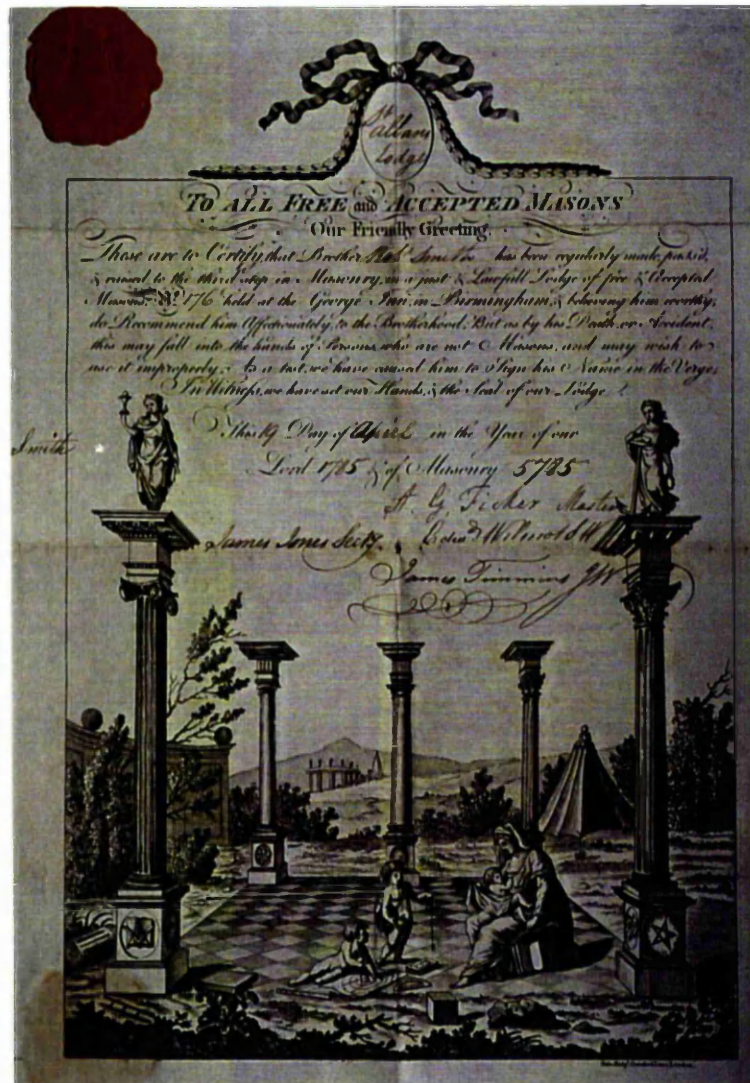 St
Albans
Lodge
TO ALL FREE and ACCEPTED MASONS
Our Friendly Greeting.
These are to Certify, that Brother Robt Smith has been regularly made, pass'd,
& raised to the third step in Masonry, in a just & Lawfull Lodge of free & Accepted
Masons, No. 176 held at the George Inn, in Birmingham, & believing him worthy,
do Recommend him Affectionately, to the Brotherhood, But as by his Death, or Accident,
this may fall into the hands of Persons, who are not Masons, and may wish to
use it improperly, As a test, we have caused him to Sign his Name in the Verge,
In Witness, we have set our Hands, & the Seal of our Lodge
This 19 Day of April in the Year of our
Smith
Lord 1785 & of Masonry 5785
Master
James Jones Secty. Edwd Wilmot S W
James Timmins J W